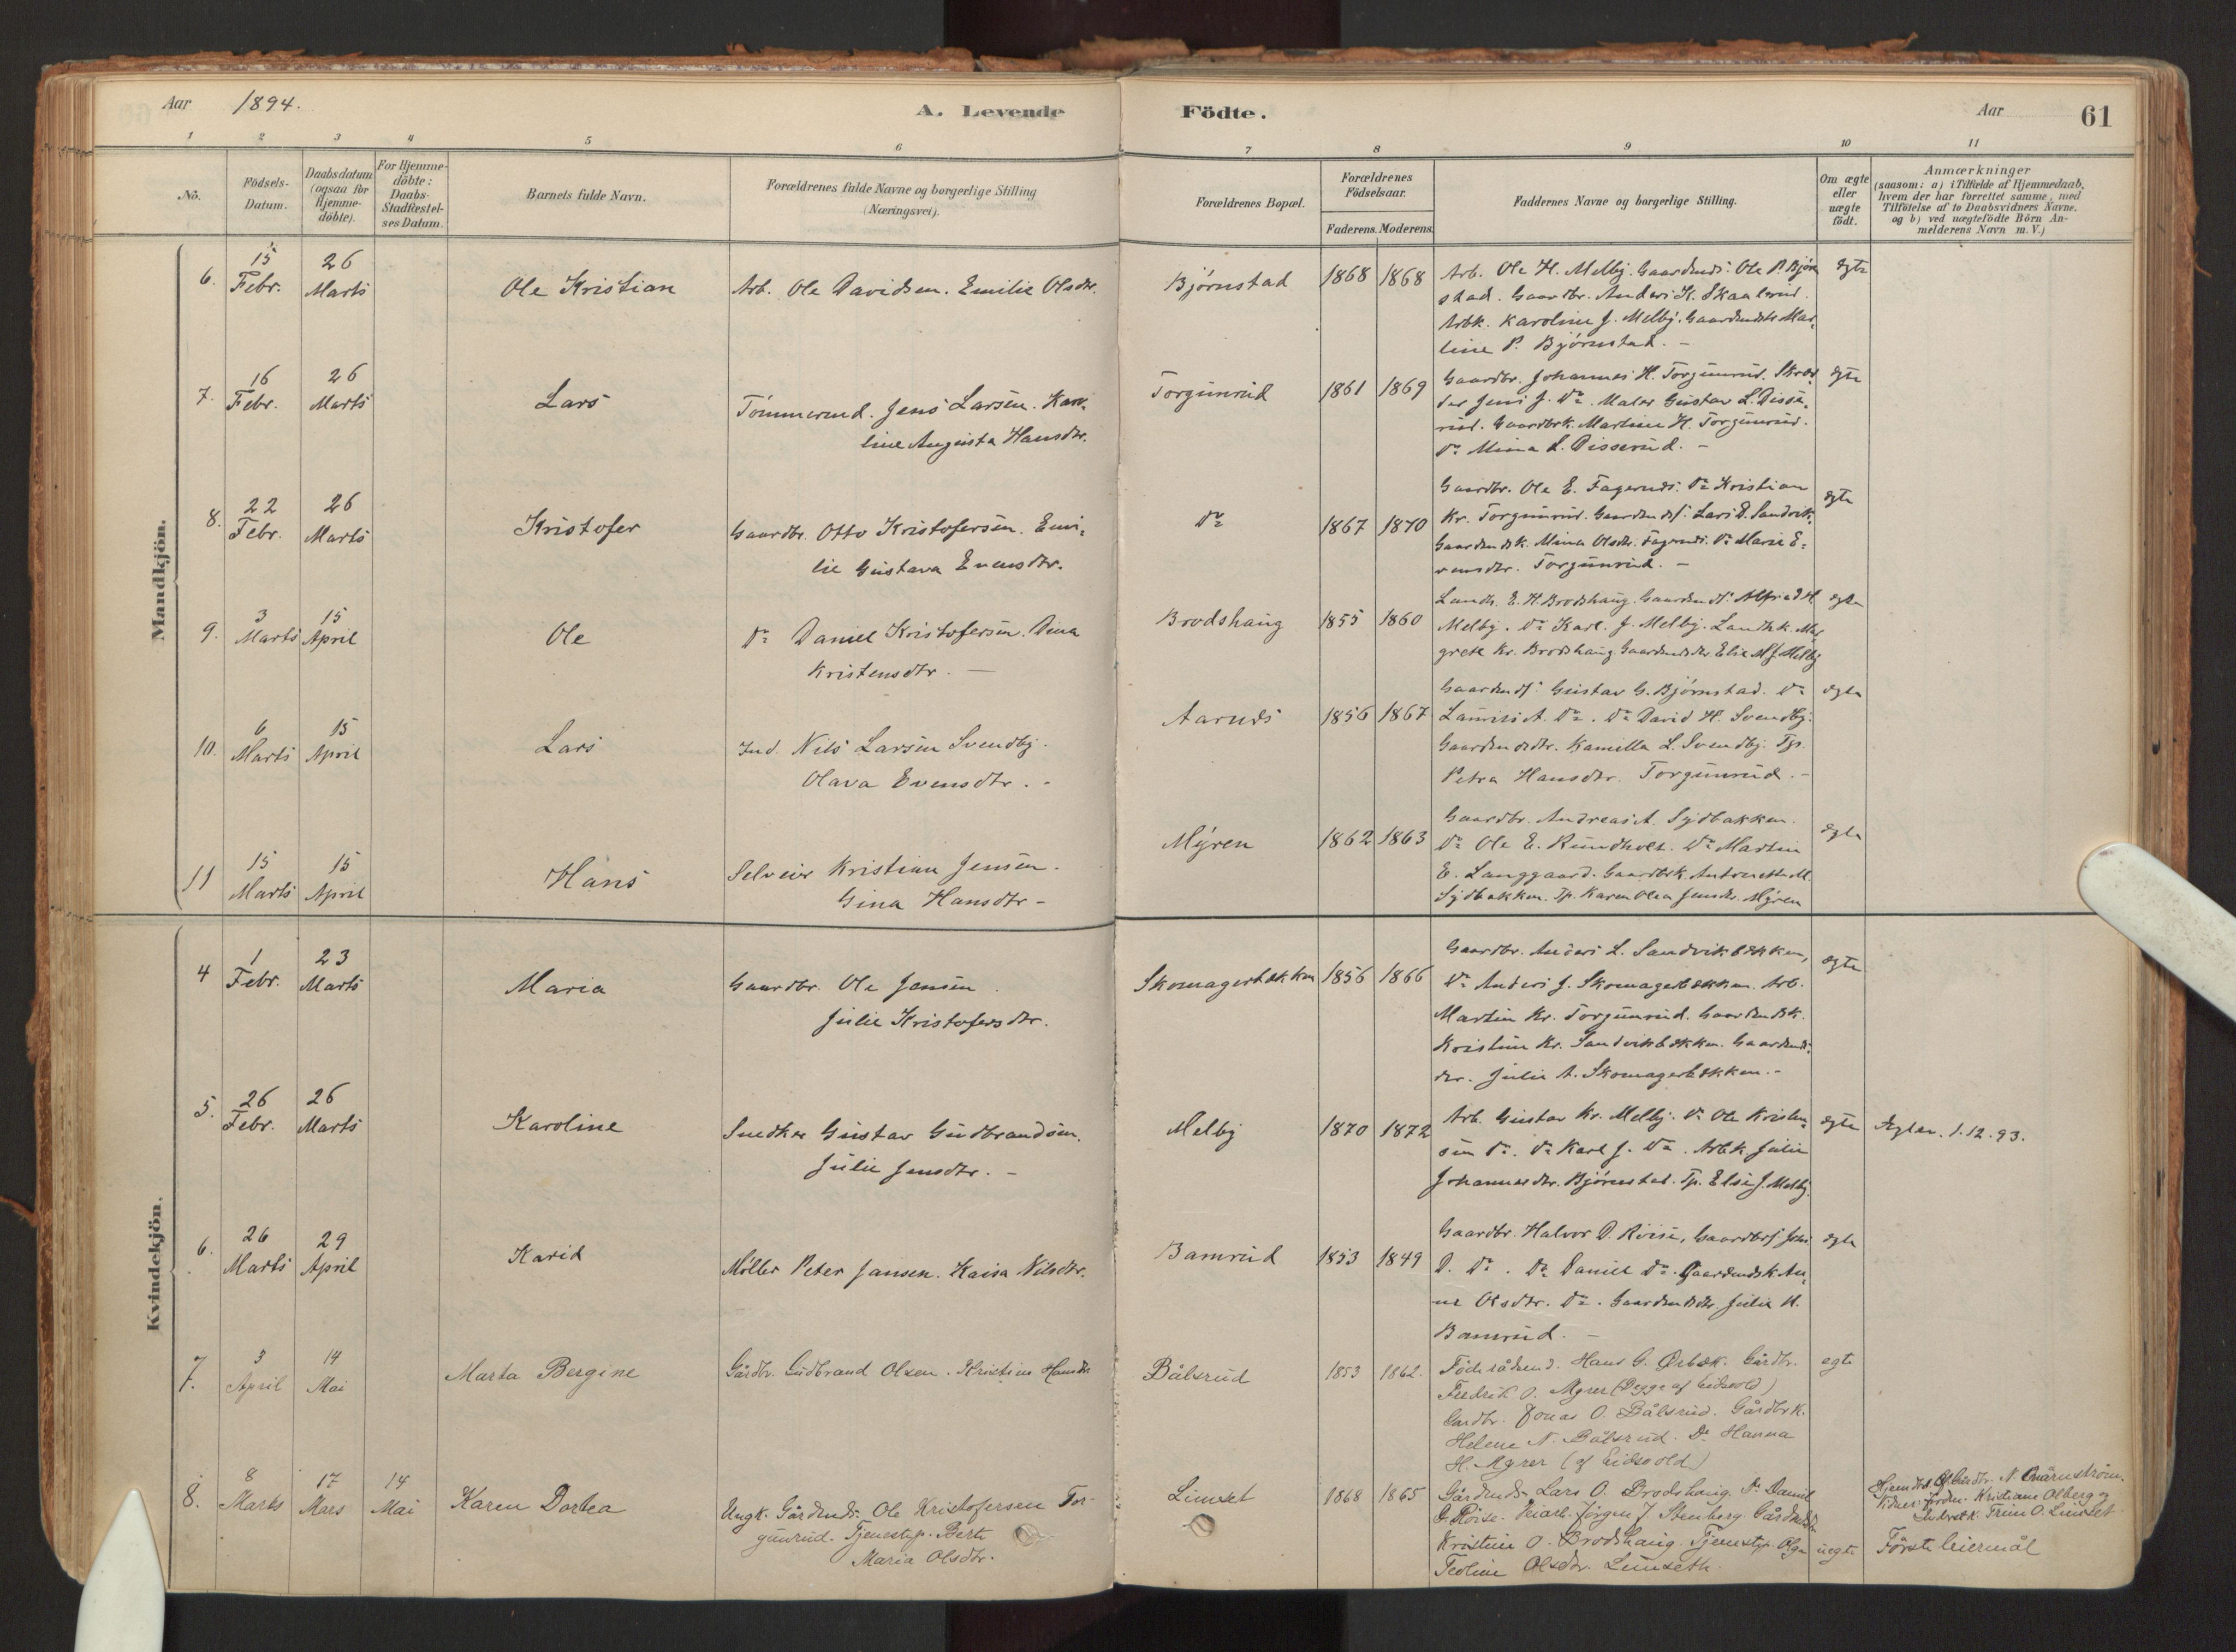 Aar 1894. A. Levende Födte. Aar 61
1 2 3 4 5 6 7 8 9 10 11
No.
Födsels-Datum.
Daabsdatum (ogsaa for Hjemme-döbte).
For Hjemme-döbte: Daabs-Stadfæstel-ses Datum.
Barnets fulde Navn.
Forældrenes fulde Navne og borgerlige Stilling (Næringsvei).
Forældrenes Bopæl.
Forældrenes Födselsaar.
Faderens. Moderens.
Faddernes Navne og borgerlige Stilling.
Om ægte eller uægte födt.
Anmærkninger
(saasom: a) i Tilfælde af Hjemmedaab,
hvem der har forrettet samme, med
Tilföielse af to Daabsvidners Navne.
og b) ved uægtefödte Börn An-
melderens Navn m. V.)
Mandkjön.
6. 15 Febr. 26 Marts Ole Kristian Arb. Ole Davidsen. Emilie Olsdtr. Bjørnstad 1868 1868 Arb. Ole H. Melby. Gaardmds: Ole P. Bjørn
stad. Gaardbr. Anders K. Skaalerud.
Arbk. Karoline J. Melby. Gaardmdsdtr Mar-
line P. Bjørnstad. –
ægte
7. 16 Febr. 26 Marts Lars Tømmermd. Jens Larsen. Karo-
line Augusta Hansdtr.
Torgunrud 1861 1869 Gaardbr. Johannes H. Torgunrud. Skræd
der Jens J. Do. Maler Gustav L. Disse-
rud. Gaardbrk. Martine H. Torgunrud.
Do Mina L. Disserud. –
ægte
8. 22 Febr. 26 Marts Kristofer Gaardbr. Otto Kristofersen. Emi-
lie Gustava Evensdtr.
Do 1867 1870 Gaardbr. Ole E. Fagernds: Do Kristian
Kr. Torgunrud. Gaardmds: Lars D. Sandvik.
Gaardmdsk. Mina Olsdtr. Fagernds. Do Marie E-
vensdtr. Torgunrud. –
ægte
9. 3 Marts 15 April Ole Do Daniel Kristofersen. Dina
Kristensdtr. –
Brodshaug 1855 1860 Landh. E. H. Brodshaug. Gaardmds: Alfred H.
Melby. Do Karl. J. Melby. Landhk. Mar
grete Kr. Brodshaug Gaardmdsdtr Elise M J Melby
ægte
10. 6 Marts 15 April Lars Ind. Nils Larsen Svendby.
Olava Evensdtr. –
Aarnds 1856 1867 Gaardmds: Gustav G. Bjørnstad. Do
Laurits A. Do. Do David H. Svendby.
Gaardmdsdtr. Kamilla L. Svendby. Tp.
Petra Hansdtr. Torgunrud. –
ægte
11 15 Marts 15 April Hans Selveier Kristian Jensen.
Gina Hansdtr –
Myren 1862 1863 Gaardbr. Andreas A. Sydbakken.
Do Ole E. Rundholt. Do Martin
E. Langgaard. Gaardbrk. Antonette M.
Sydbakken. Tp. Karen Olea Jensdtr. Myren
ægte
Kvindekjön.
4 1 Febr. 23 Marts Maria Gaardbr. Ole Jensen.
Julie Kristofersdtr.
Skomagerbækken 1856 1866 Gaardbr. Anders L. Sandvikbækken,
Do Anders J. Skomagerbækken. Arb.
Martin Kr. Torgunrud. Gaardmdsk.
Kristine Kr. Sandvikbækken. Gaardmds-
dtr. Julie A. Skomagerbækken. –
ægte
5. 26 Febr. 26 Marts Karoline Snedker Gustav Gudbrandsen.
Julie Jensdtr. –
Melby 1870 1872 Arb. Gustav Kr. Melby. Do Ole Kristen-
sen Do. Do Karl J. Do. Arbk. Julie
Johannesdtr. Bjørnstad. Tp. Elise J. Melby.
ægte 1.12.93.
6. 26 Marts 29 April Karid Møller Peter Jansen. Kaisa Nilsdtr. Bamrud 1853 1849 Gaardbr. Halvor D. Röise, Gaardbrs: John
D. Do. Do Daniel Do. Gaardmdsk. An-
ne Olsdtr. Do. Gaardmdsdtr. Julie H.
Bamrud. –
ægte
7. 3 April 14 Mai Marta Bergine Gårdbr. Gudbrand Olsen. Kristine Hansdtr. Bålsrud 1853 1862. Föderådsmd. Hans G. Ørbæk. Gårdbr.
Fredrik O. Myrer (Begge af Eidsvold)
Gardbr. Jonas O. Bålsrud. Gårdbrk.
Helene N. Bålsrud. Do Hanna
H. Myrer (af Eidsvold)
ægte
8. 8 Marts 17 Mars 14 Mai Karen Dortea Ungk. Gårdmds: Ole Kristofersen Tor-
gunrud. Tjenestep. Berte
Maria Olsdtr.
Limset 1868 1865 Gårdmds: Lars O. Brodshaug. Do Daniel
G. Röise. Jørgen J. Stenberg. Gårdmdsdtr
Kristine O. Brodshaug. Tjenestp. Olga
Teoline Olsdtr. Limseth.
uegte
Hjemdt. af Gårdbr. N. Qvärnström.
Vidner: Jordm. Kristiane Olberg og
Inderstk. Trine O. Limset.
Første leiermål